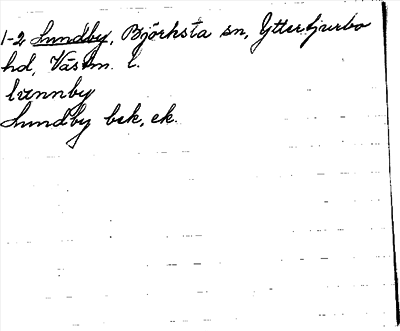 1-2 Lundby, Björksta sn, Yttertjurbo
hd, Västm. l.
lunnby
Lundby bsk, ek.